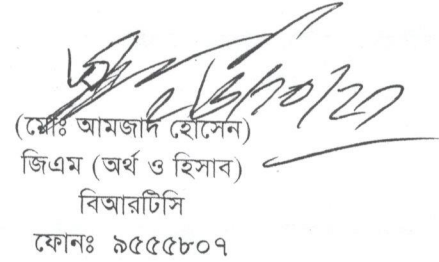 (মোঃ আমজাদ হোসেন)
জিএম (অর্থ ও হিসাব)
বিআরটিসি
ফোনঃ ৯৫৫৫৮০৭